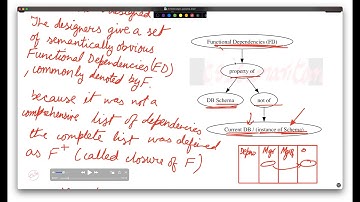 The designers give a set
of semantically obvious
Functional Dependencies(FD)
, commonly denoted by F.
because it was not a
comprehensive list of dependencies
the complete list was defined
as F+ (called closure of F)
Functional Dependencies (FD)
property of
DB Schema
not of
Current DB / (instance of Schema)
Depno